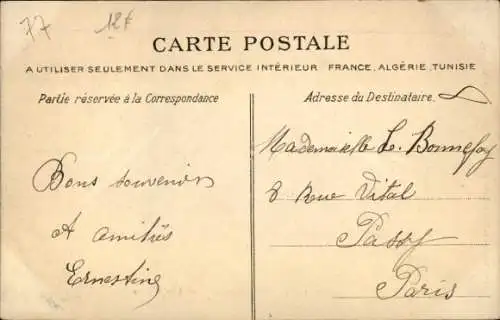 77 12F
CARTE POSTALE
A UTILISER SEULEMENT DANS LE SERVICE INTÉRIEUR FRANCE, ALGÉRIE, TUNISIE
Partie réservée à la Correspondance
Adresse du Destinataire.
Bons souvenirs
et amitiés
Ernestine
Mademoiselle L. Bonnefoy
8 Rue Vital
Passy
Paris